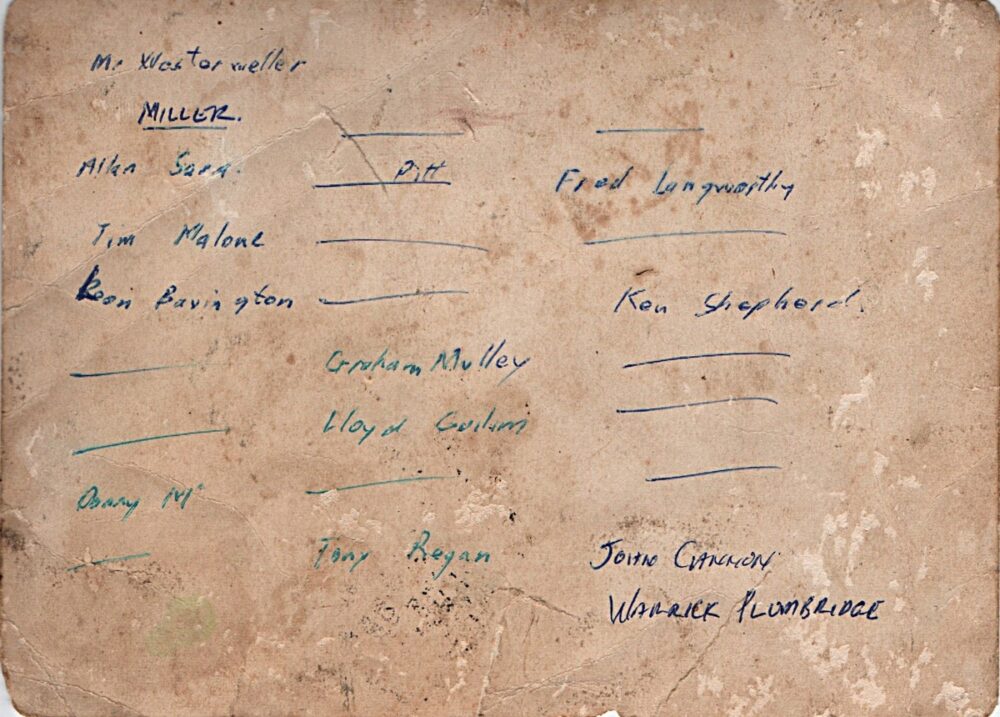 Mr Westerweller
MILLER.
Allan Sara.
Pitt
Fred Langworthy
Tim Malone
Kevin Bavington
Ken Shepherd.
Graham Mulley
Lloyd
Danny Mc
Tony Regan
JOHN CANNON
WARRICK PLUMBRIDGE